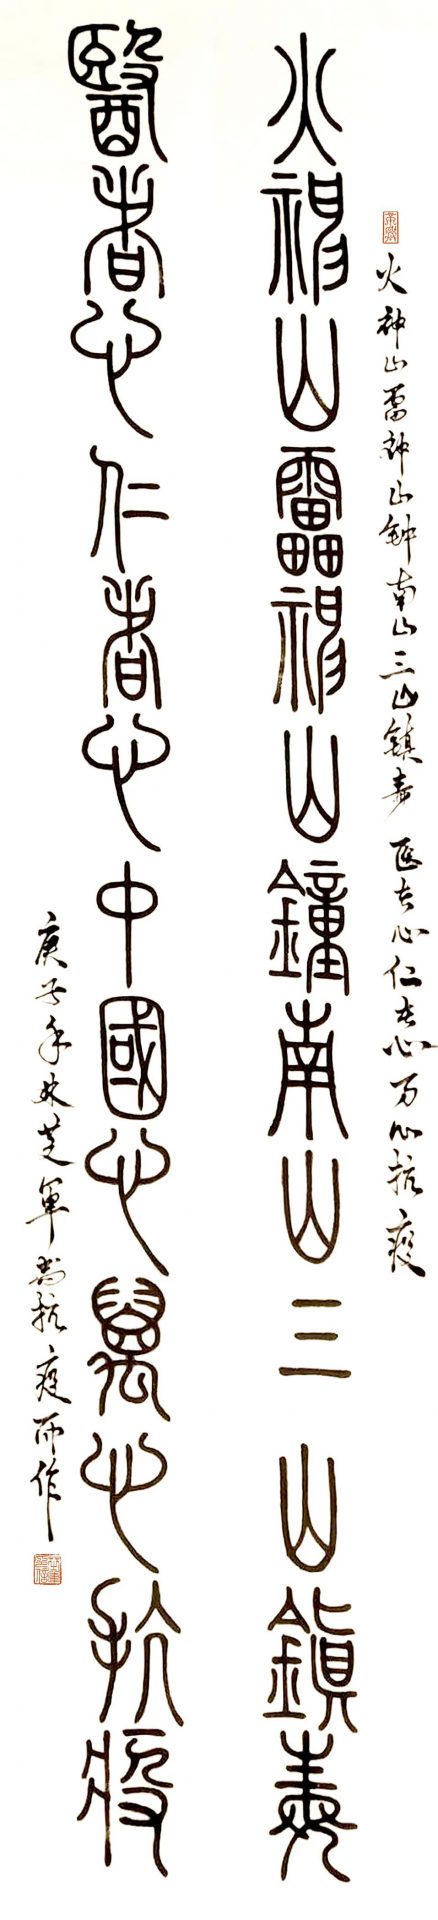 火神山雷神山钟南山三山镇毒 医者心仁者心万心抗疫
火神山靁神山鐘南山三山鎮毒
醫者心仁者心中國心萬心抗疫
庚子年林芝軍为抗疫而作